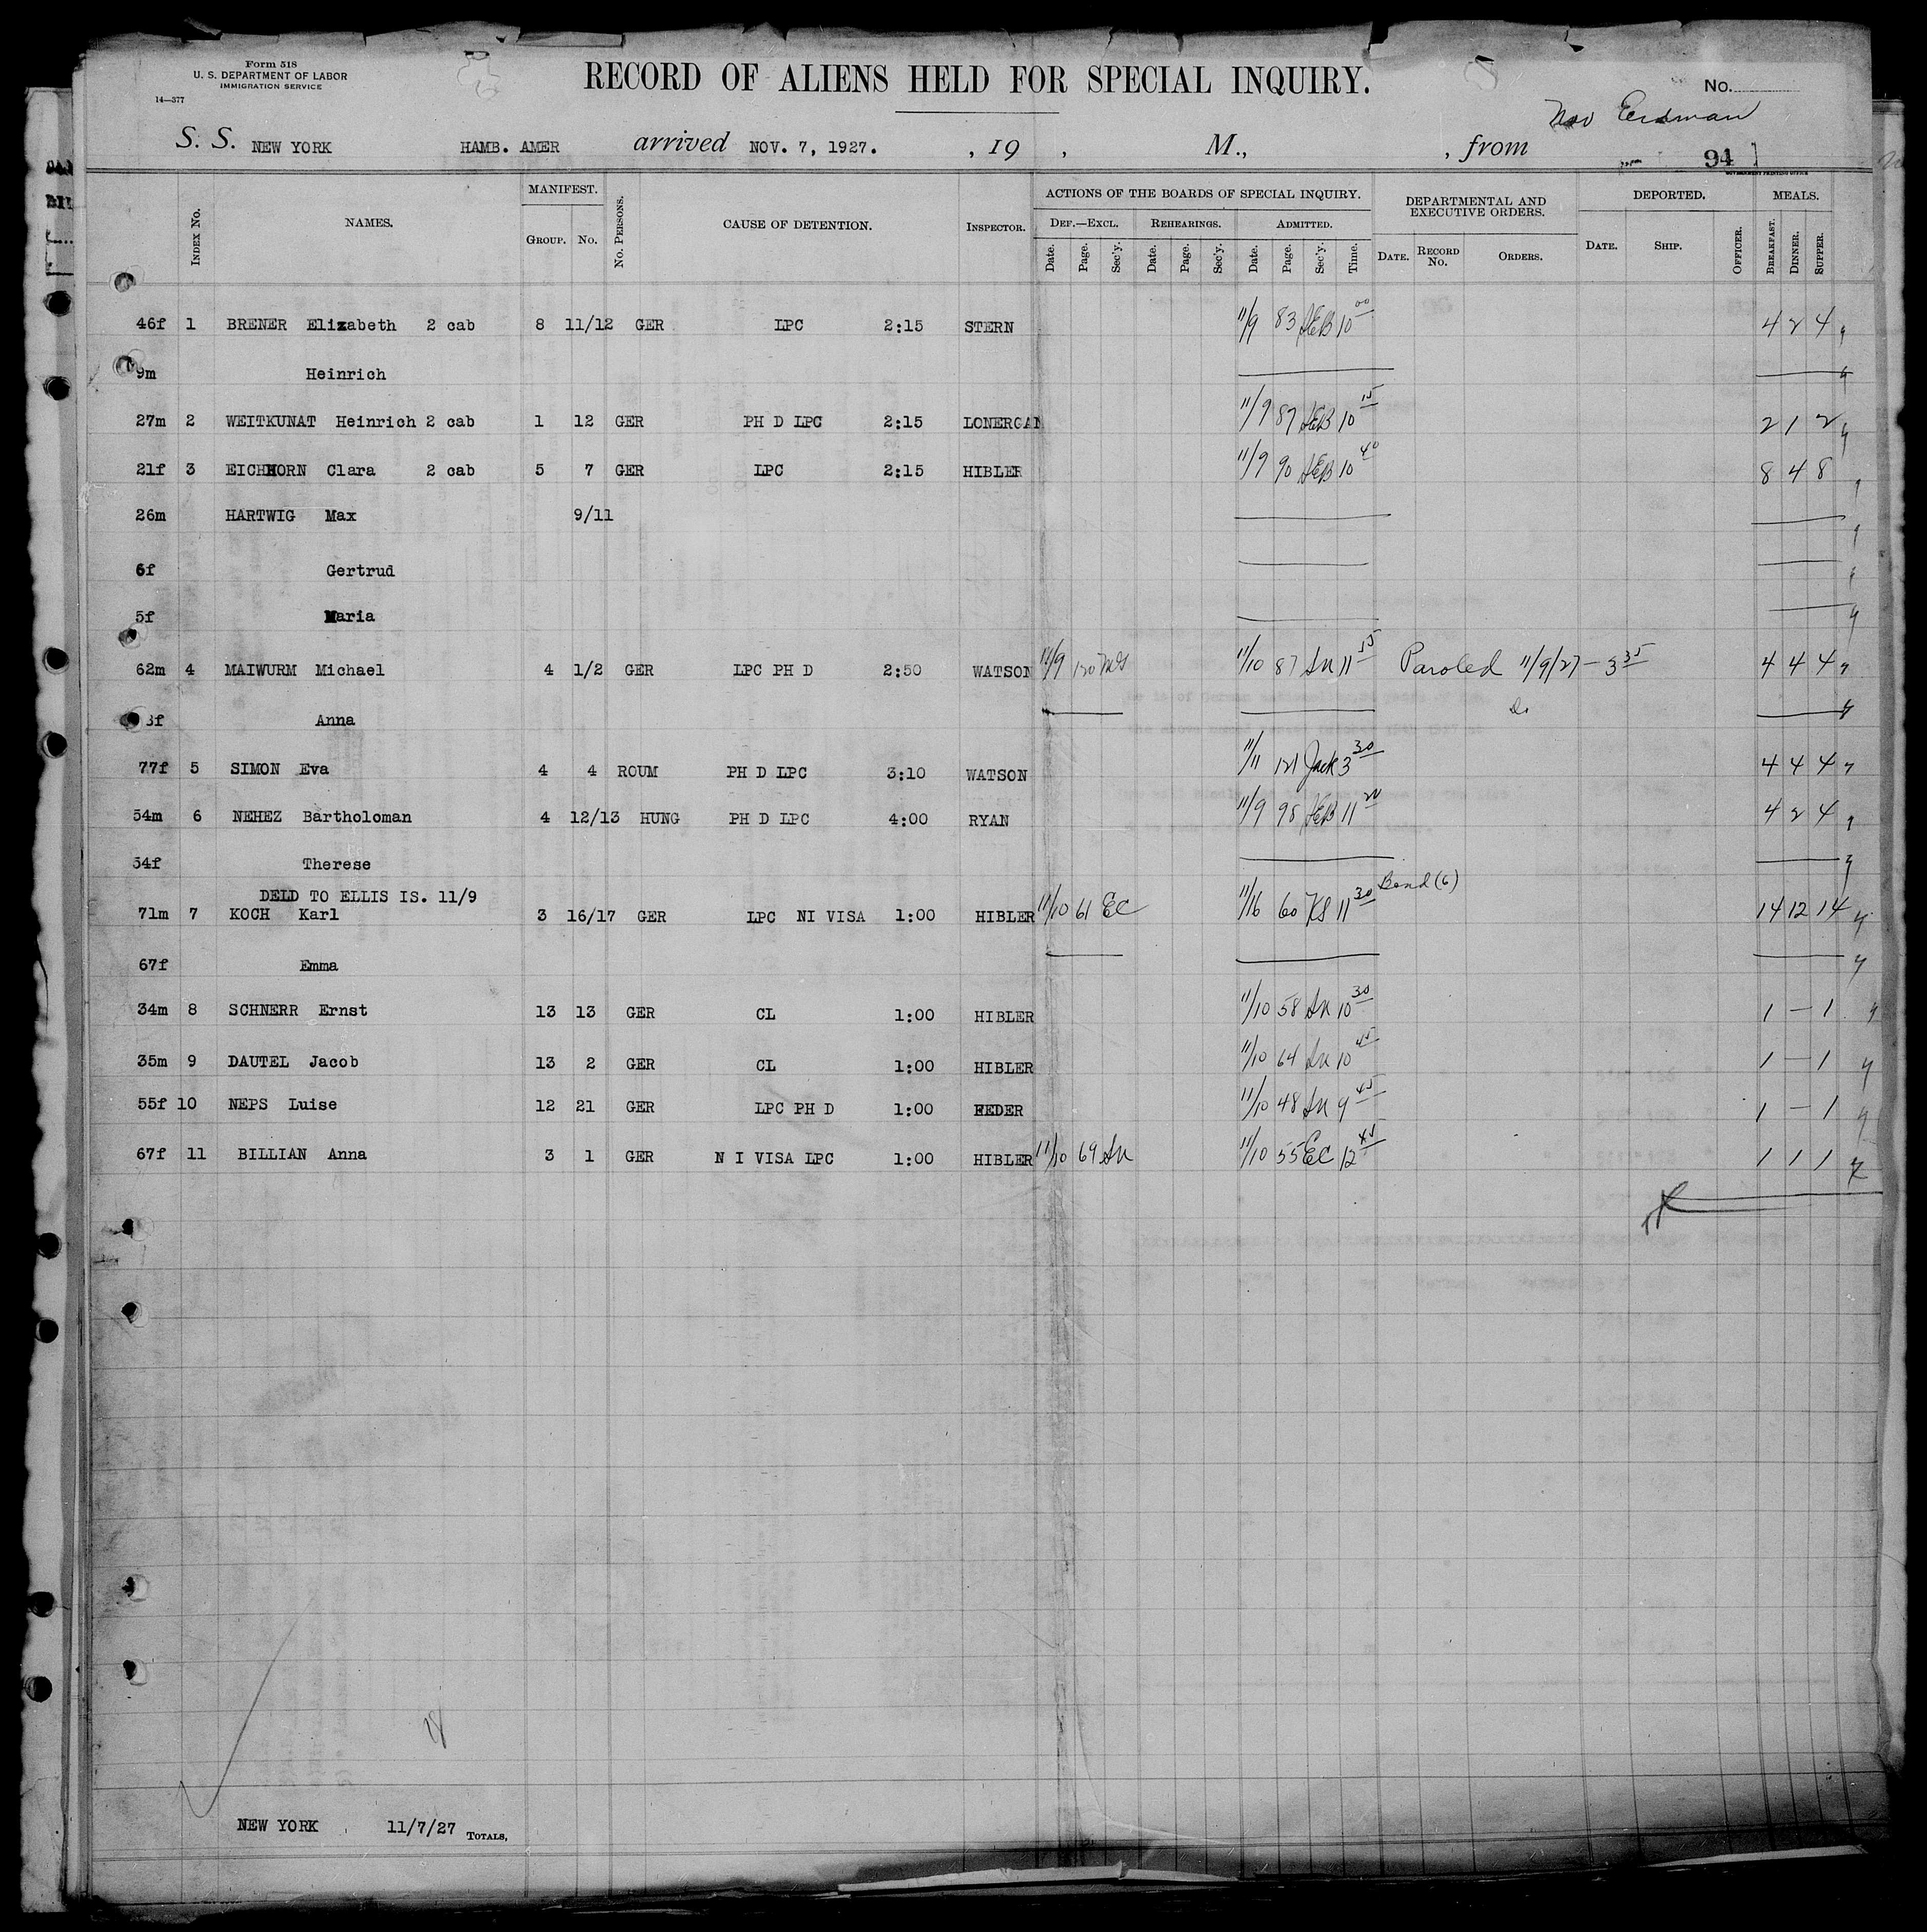 Form 518
U. S. DEPARTMENT OF LABOR
IMMIGRATION SERVICE
14—377
RECORD OF ALIENS HELD FOR SPECIAL INQUIRY.
No.
Nov Erdman
S. S. NEW YORK HAMB. AMER arrived NOV. 7, 1927. , 19 , M., , from 94
GOVERNMENT PRINTING OFFICE
INDEX NO. NAMES. MANIFEST. GROUP. NO. NO. PERSONS. CAUSE OF DETENTION. INSPECTOR. ACTIONS OF THE BOARDS OF SPECIAL INQUIRY. DEF.—EXCL. Date. Page. Sec'y. REHEARINGS. Date. Page. Sec'y. ADMITTED. Date. Page. Sec'y. Time. DEPARTMENTAL AND EXECUTIVE ORDERS. DATE. RECORD NO. ORDERS. DEPORTED. DATE. SHIP. OFFICER. MEALS. BREAKFAST. DINNER. SUPPER.
46f 1 BRENER Elizabeth 2 cab 8 11/12 GER LPC 2:15 STERN 11/9 83 JEB 10 00 4 2 4
9m Heinrich
27m 2 WEITKUNAT Heinrich 2 cab 1 12 GER PH D LPC 2:15 LONERGAN 11/9 87 JEB 10 15 2 1 2
21f 3 EICHHORN Clara 2 cab 5 7 GER LPC 2:15 HIBLER 11/9 90 JEB 10 40 8 4 8
26m HARTWIG Max 9/11
6f Gertrud
5f Maria
62m 4 MAIWURM Michael 4 1/2 GER LPC PH D 2:50 WATSON 11/9 120 11/10 87 11 15 Paroled 11/9/27 — 3 35 4 4 4
3f Anna Do
77f 5 SIMON Eva 4 4 ROUM PH D LPC 3:10 WATSON 11/11 121 Jack 3 30 4 4 4
54m 6 NEHEZ Bartholoman 4 12/13 HUNG PH D LPC 4:00 RYAN 11/9 98 JEB 11 20 4 2 4
54f Therese
DELD TO ELLIS IS. 11/9
71m 7 KOCH Karl 3 16/17 GER LPC NI VISA 1:00 HIBLER 11/10 61 EC 11/16 60 KS 11 30 Bond (6) 14 12 14
67f Emma
34m 8 SCHNERR Ernst 13 13 GER CL 1:00 HIBLER 11/10 58 10 30 1 — 1
35m 9 DAUTEL Jacob 13 2 GER CL 1:00 HIBLER 11/10 64 10 45 1 — 1
55f 10 NEPS Luise 12 21 GER LPC PH D 1:00 FEDER 11/10 48 9 45 1 — 1
67f 11 BILLIAN Anna 3 1 GER N I VISA LPC 1:00 HIBLER 11/10 69 11/10 55 EC 12 45 1 1 1
NEW YORK 11/7/27 TOTALS,